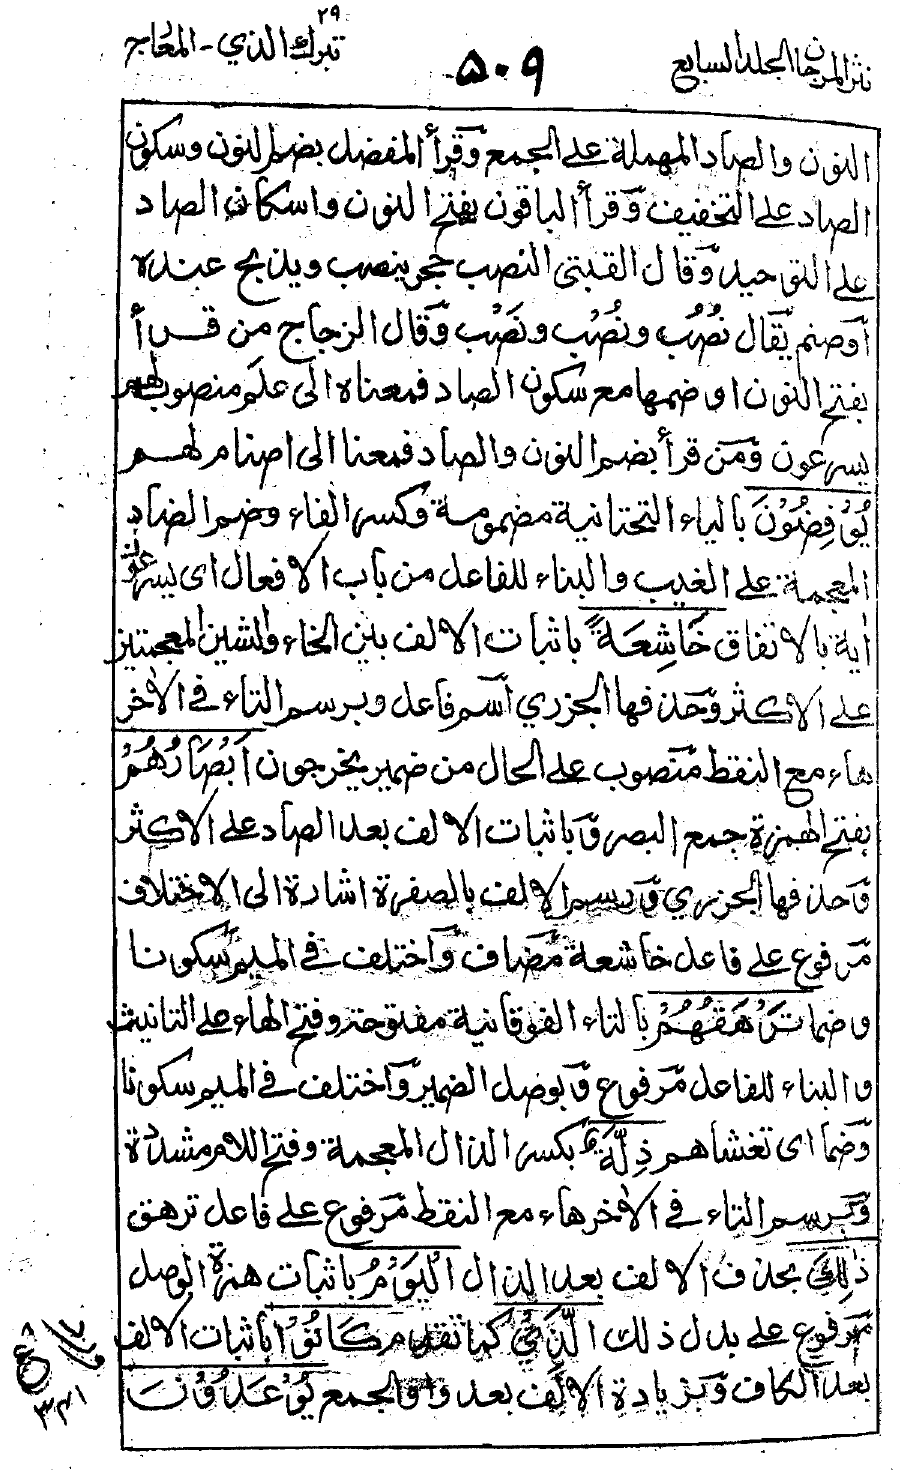 نثر المرجان الجلد السابع
۵۰۹
تبرك الذي ۲۹ - المعارج
النون والصاد المهملة على الجمع وقرأ المفضل بضم النون وسكون
الصاد على التخفيف وقرأ الباقون بفتح النون واسكان الصاد
على التوحيد وقال القتبى النصب حجر ينصب ويذبح عنده
أو صنم يقال نُصُب ونُصْب ونَصْب وقال الزجاج من قرأ
بفتح النون او ضمها مع سكون الصاد فمعناه الى علم منصوب لهم
يسرعون ومن قرأ بضم النون والصاد فمعنا الى اصنام لهم
يُوْفِضُوْنَ بالياء التحتانية مضمومة وكسر الفاء وضم الضاد
المعجمة على الغيب والبناء للفاعل من باب الافعال اى يسرعون
اية بالاتفاق خَاشِعَةً باثبات الالف بين الخاء والشين المعجمتين
على الاكثر وحذفها الجزري اسم فاعل وبرسم التاء في الاخر
هاء مع النقط منصوب على الحال من ضمير يخرجون اَبْصَارُهُمْ
بفتح الهمزة جمع البصر وباثبات الالف بعد الصاد على الاكثر
وحذفها الجزري ورسم الالف بالصفرة اشارة الى الاختلاف
مرفوع على فاعل خاشعة مضاف واختلف في الميم سكونا
وضما تَرْهَقُهُمْ بالتاء الفوقانية مفتوحة وفتح الهاء على التانيث
والبناء للفاعل مرفوع وبوصل الضمير واختلف في الميم سكونا
وضما اى تغشاهم ذِلَّةٌ بكسر الذال المعجمة وفتح اللام مشددة
وبرسم التاء في الاخر هاء مع النقط مرفوع على فاعل ترهق
ذٰلِكَ بحذف الالف بعد الذال الْيَوْمُ باثبات همزة الوصل
مرفوع على بدل ذلك الَّذِيْ كما تقدم كَانُوْا باثبات الالف
بعد الكاف وبزيادة الالف بعد واو الجمع يُوْعَدُوْنَ